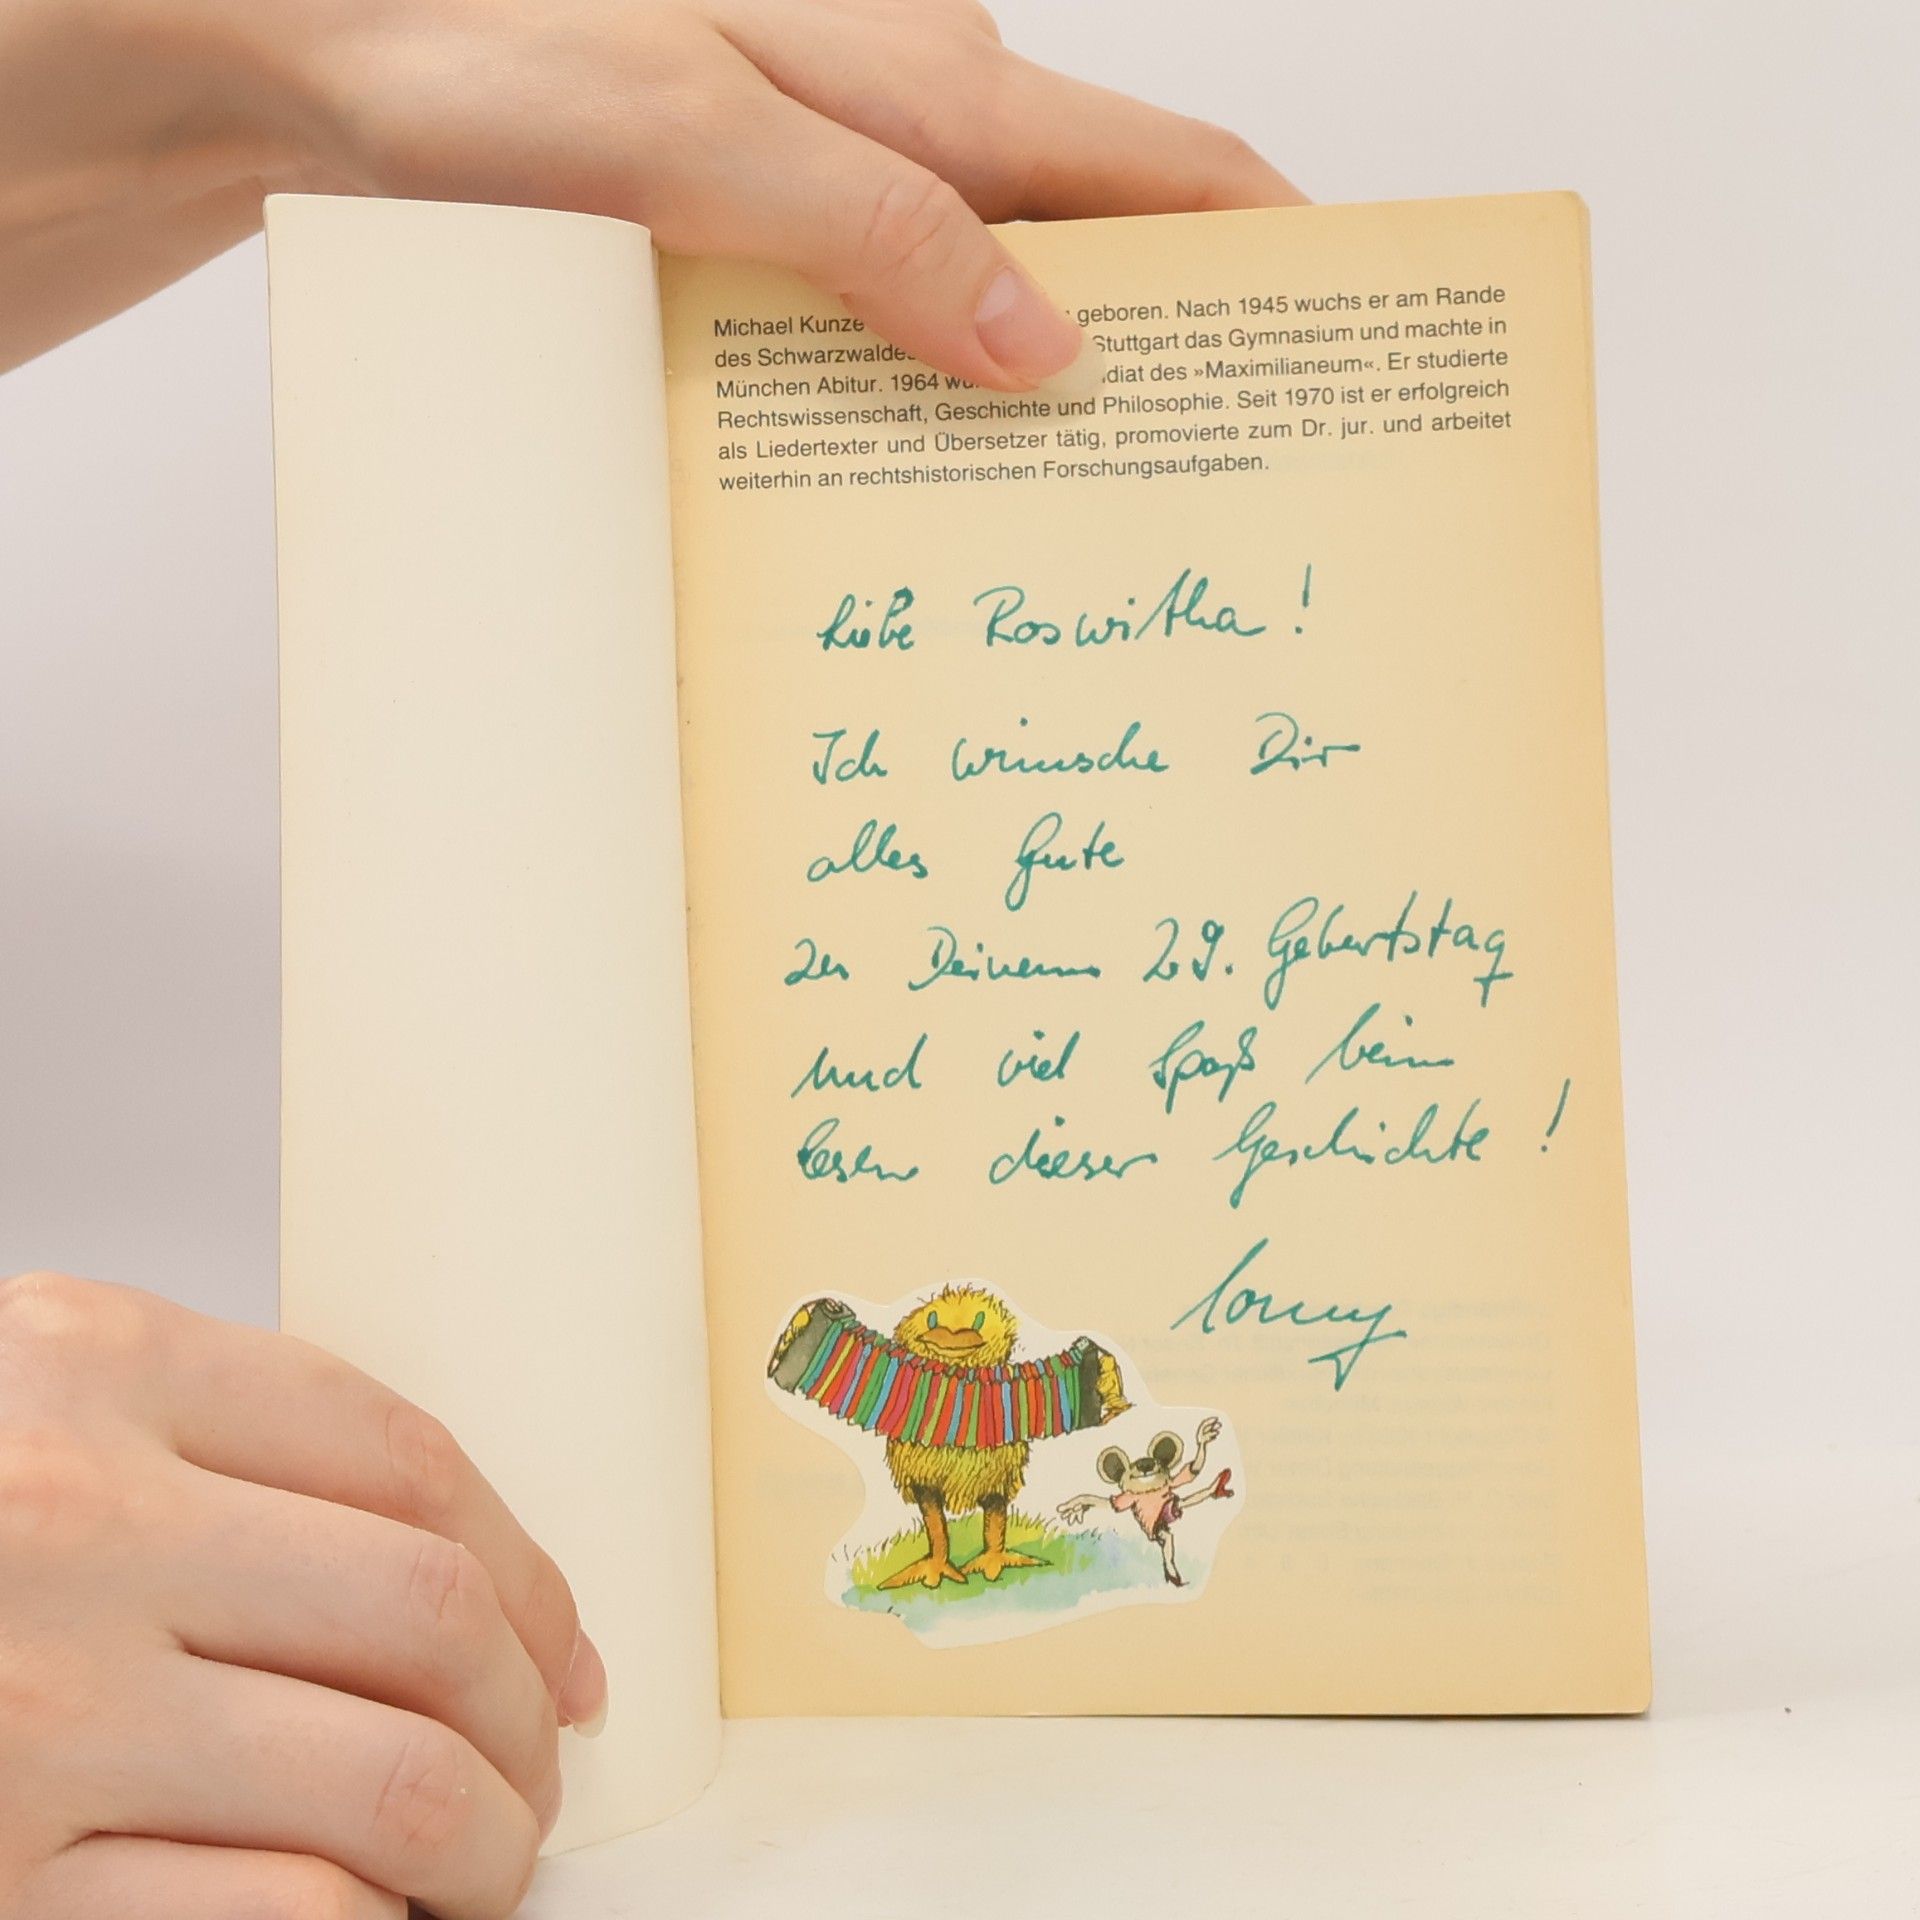 Michael Kunze geboren. Nach 1945 wuchs er am Rande
des Stuttgart das Gymnasium und machte in
München Abitur. 1964 des »Maximilianeum«. Er studierte
Rechtswissenschaft, Geschichte und Philosophie. Seit 1970 ist er erfolgreich
als Liedertexter und Übersetzer tätig, promovierte zum Dr. jur. und arbeitet
weiterhin an rechtshistorischen Forschungsaufgaben.
Liebe Roswitha!
Ich wünsche Dir
alles Gute
zu Deinem 29. Geburtstag
und viel Spaß beim
lesen dieser Geschichte!